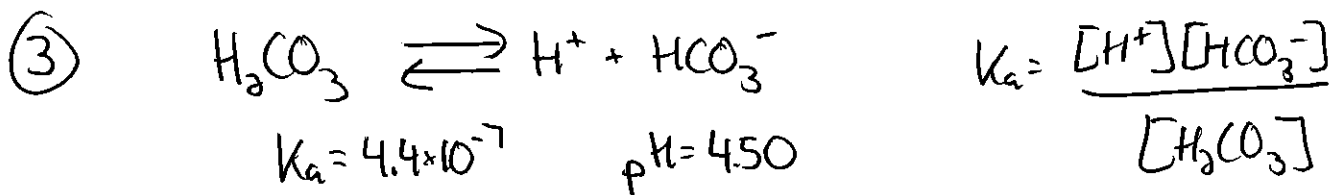 ③ H₂CO₃ ⇌ H⁺ + HCO₃⁻ Ka = [H⁺][HCO₃⁻] / [H₂CO₃]
Ka = 4.4×10⁻⁷ pH = 4.50